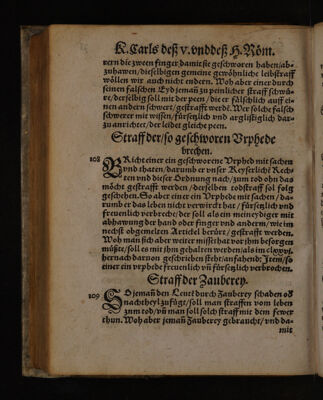 K. Carls deß v. vnd deß H. Röm.
vern die zween finger damit sie geschworen haben/ab-
zuhawen/dieselbigen gemeine gewöhnliche leibstraff
wöllen wir auch nicht endern. Woh aber einer durch
seinen falschen Eyd jeman̄ zu peinlicher straff schwü-
re/derselbig soll mit der peen/die er fälschlich auff ei-
nen andern schwert/gestrafft werdē. Wer solche falsch
schwerer mit wissen/fürsetzlich vnd arglistiglich dar-
zu anrichtet/der leidet gleiche peen.
Straff der/so geschworen Vrphede
brechen.
108 BRicht einer ein geschworene Vrphed mit sachen
vnd thaten/darumb er vnser Keyserlichē Rech-
ten vnd dieser Ordnung nach/zum tod ohn das
möcht gestrafft werden/derselben todstraff sol folg
geschehen. So aber einer ein Vrphede mit sachen/da-
rumb er das leben nicht verwirckt hat/fürsetzlich vnd
freuenlich verbrecht/der soll als ein meineydiger mit
abhawung der hand oder finger vnd andern/wie im
nechst obgemelten Artickel berürt/gestrafft werden.
Woh man sich aber weiter missethat vor jhm besorgen
müßte/soll es mit jhm gehalten werden/als im clxxvj.
hernach daruon geschrieben steht/anfahend: Item/so
einer ein vrphede freuenlich vn̄ fürsetzlich verbrochen.
Straff der Zauberey.
109 SO jeman̄ den Leutē durch Zauberey schaden oď
nachtheyl zufügt/soll man straffen vom leben
zum tod/vn̄ man soll solch straff mit dem fewer
thun. Woh aber jeman̄ Zauberey gebraucht/vnd da-
mit